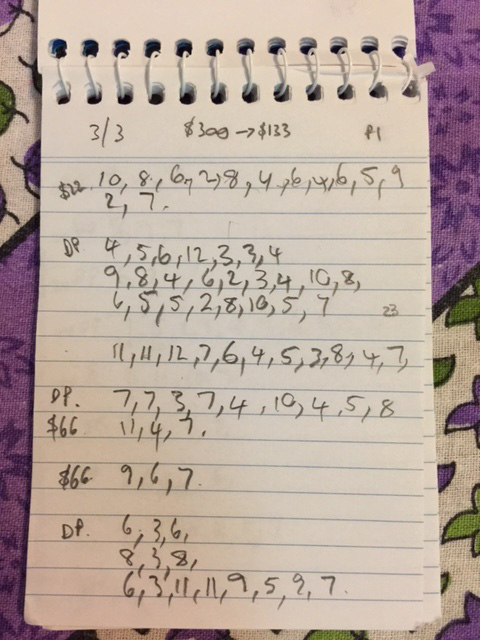 3/3 $300 → $133 P1
$22 10, 8, 6, 2, 8, 4, 6, 4, 6, 5, 9
2, 7.
DP 4, 5, 6, 12, 3, 3, 4
9, 8, 4, 6, 2, 3, 4, 10, 8,
6, 5, 5, 2, 8, 10, 5, 7 23
11, 11, 12, 7, 6, 4, 5, 3, 8, 4, 7,
DP. 7, 7, 3, 7, 4, 10, 4, 5, 8
$66 11, 4, 7.
$66. 9, 6, 7.
DP. 6, 3, 6,
8, 3, 8,
6, 3, 11, 11, 9, 5, 9, 7.